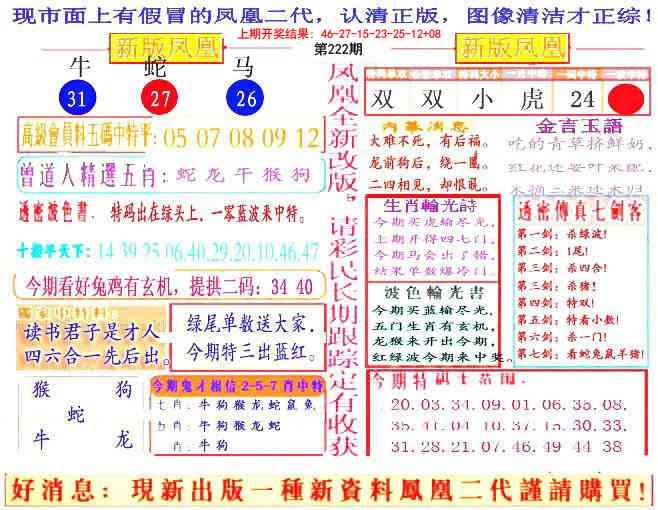 现市面上有假冒的凤凰二代，认清正版，图像清洁才正综！
上期开奖结果：46-27-15-23-25-12+08
新版凤凰
第222期
新版凤凰
牛 蛇 马
31 27 26
高級會員料五碼中特平：05 07 08 09 12
曾道人精選五肖：蛇龙牛猴狗
透密波色書：特码出在绿头上，一零蓝波来中特。
十拿平天下：14.39.25.06.40.29.20.10.46.47
今期看好兔鸡有玄机，提拱二码：34 40
读书君子是才人
四六合一先后出。
绿尾单数送大家．
今期特三出蓝红。
猴 狗
蛇
牛 龙
今期鬼才报信2-5-7肖中特
七肖：牛狗猴龙蛇鼠兔
五肖：牛狗猴龙蛇
肖：牛狗
凤凰全新改版。请彩民长期跟踪定有收获
双 双 小 虎 24
内幕消息
大难不死，有后福。
龙前狗后，绕一圈。
二四相见，却恨晚。
金言玉語
吃的青草挤鲜奶，
生肖輪光詩
今期买虎输尽光，
上期开得四七门，
今期马会出了错，
结果单数爆冷门。
波色輪光書
今期买蓝输尽光，
五门生肖有玄机，
龙猴来开出今期，
红绿波今期来中奖。
透密傳真七劍客
第一剑：杀绿波！
第二剑：1尾！
第三剑：杀四合！
第三剑：杀猪！
第四剑：特双！
第五剑：特看小数！
第六剑：杀一门！
第七剑：看蛇兔鼠羊猪！
20.03.34.09.01.06.35.08.
35.41.04.10.37.15.30.33.
31.28.21.07.46.49.44 38
好消息：現新出版一種新資料鳳凰二代謹請購買！